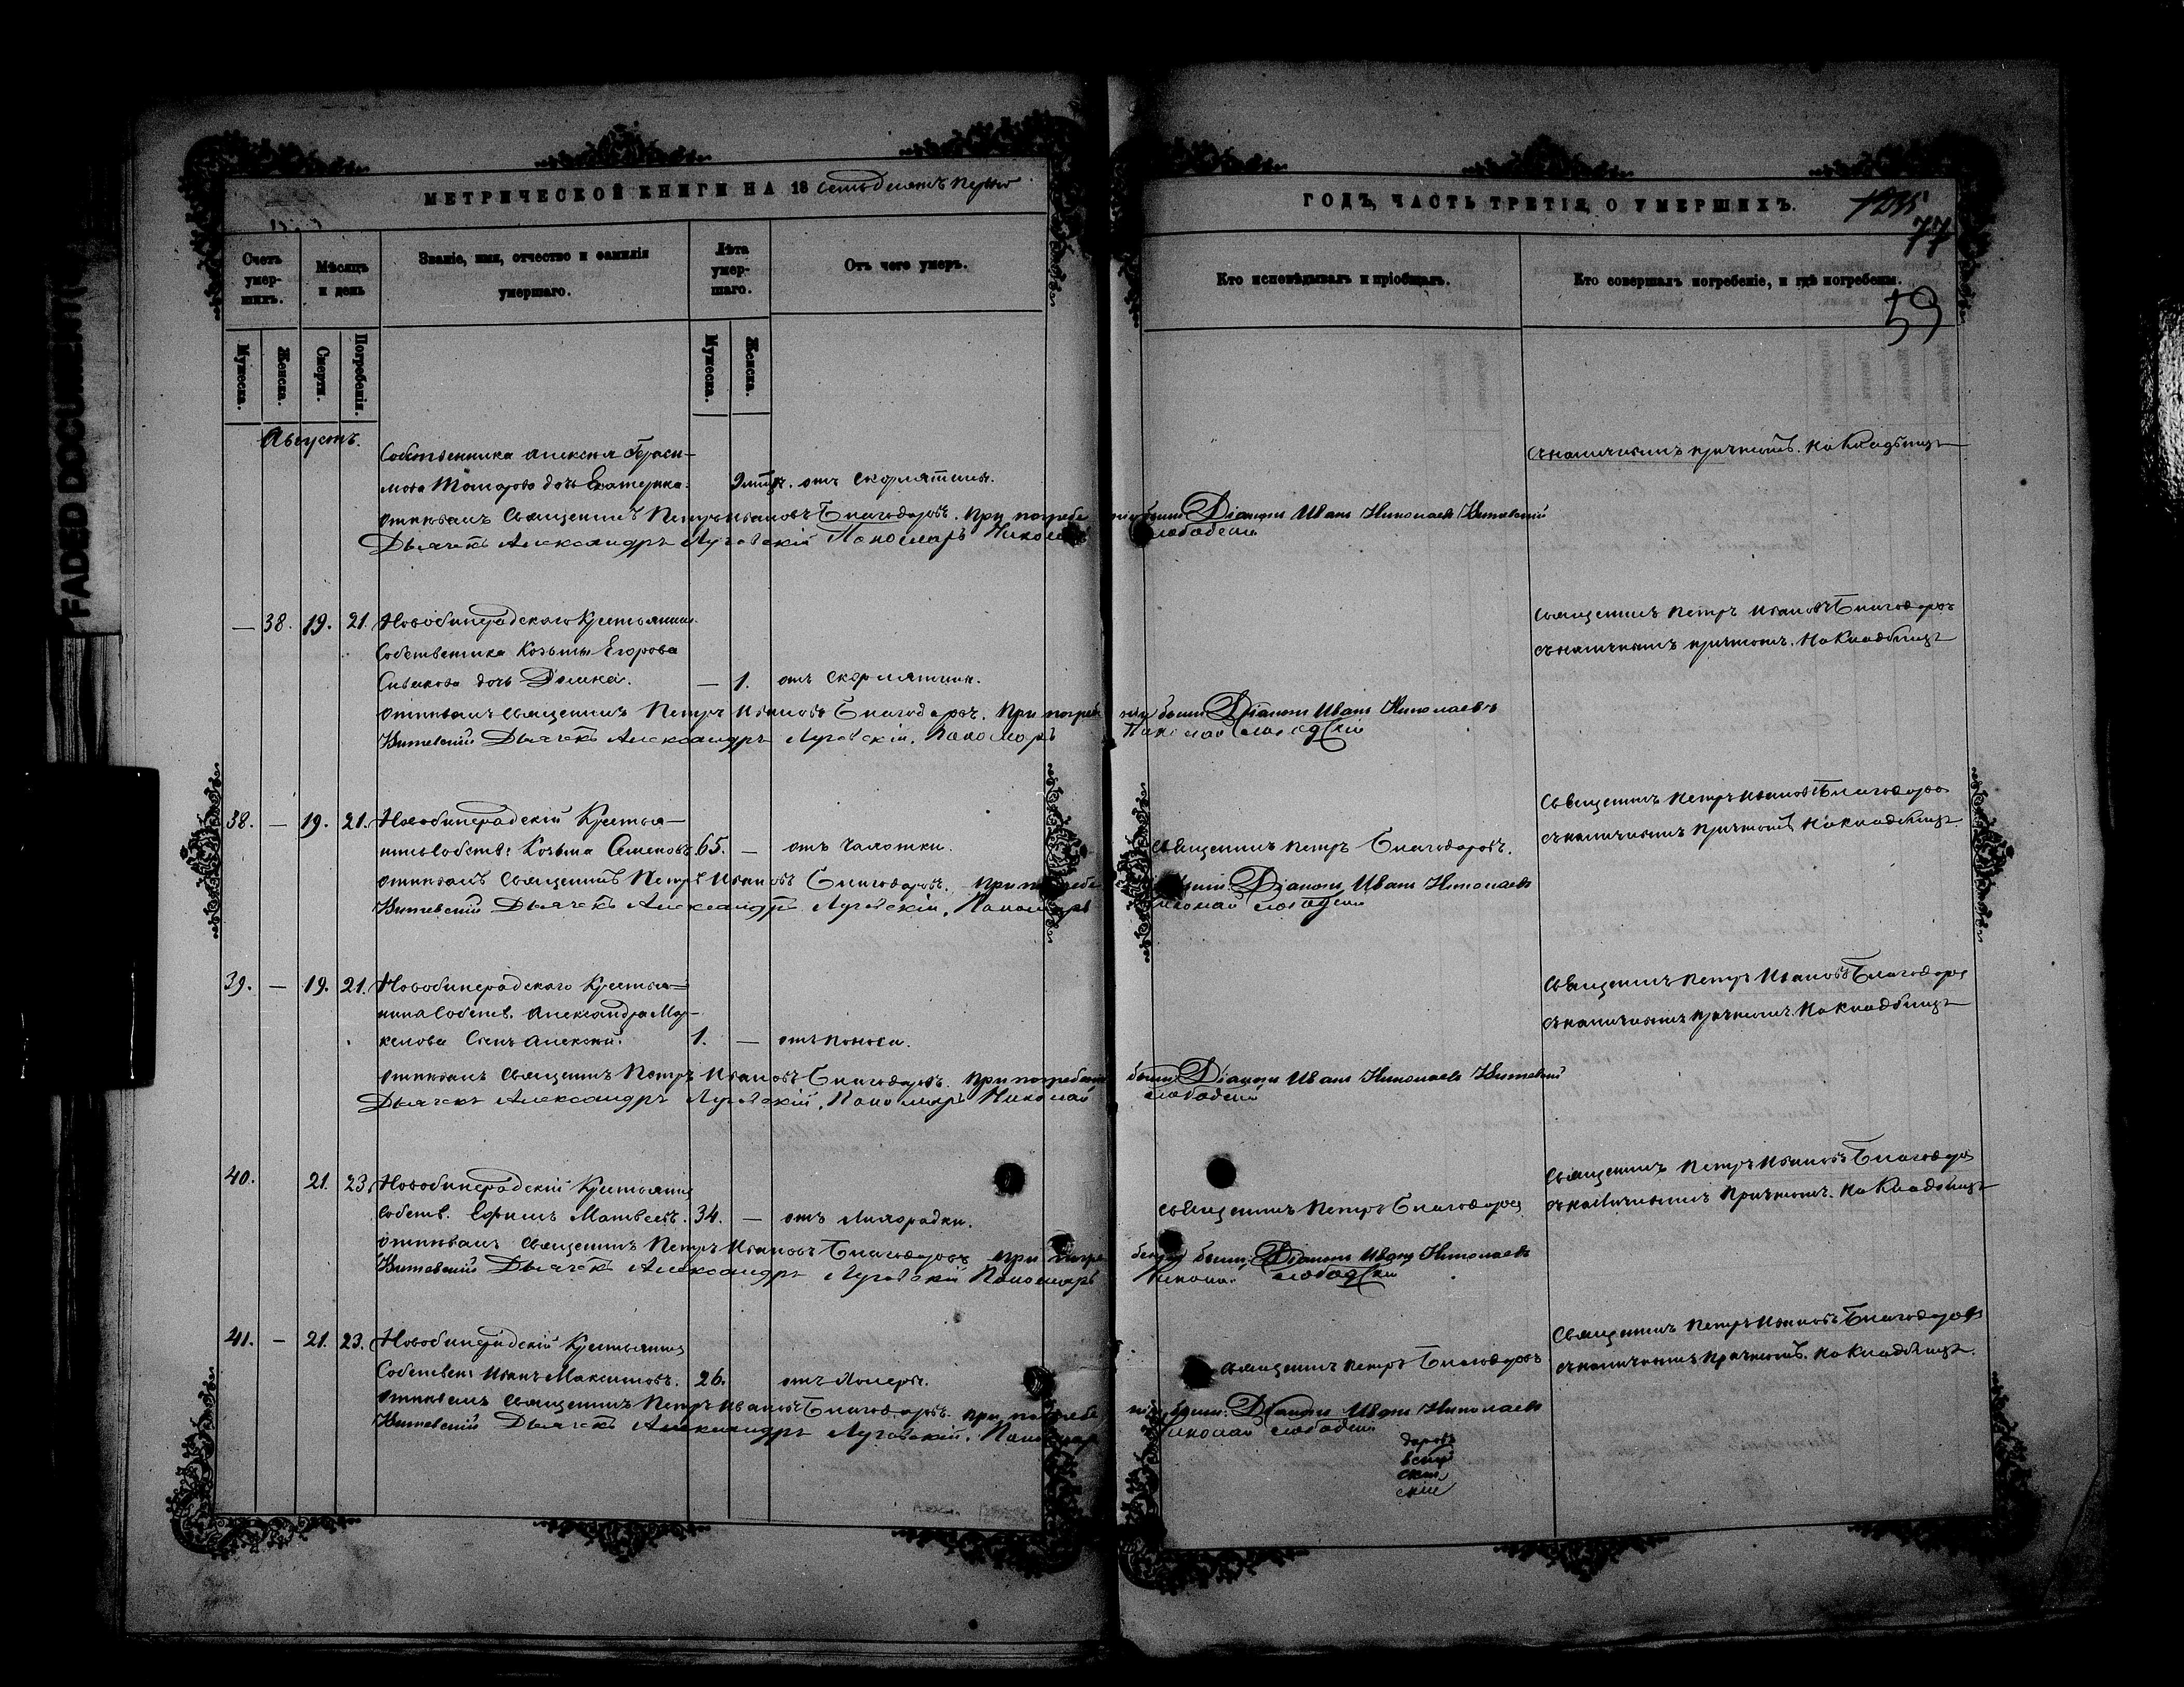 FADED DOCUMENT(
МЕТРИЧЕСКОЙ КНИГИ НА 18 семьдесятъ первый
Счетъ умер-
шихъ.
Мѣсяцъ
и день
Званіе, имя, отчество и фамилія
умершаго.
Лѣта
умер-
шаго.
Отъ чего умеръ.
Мужеска.
Женска.
Смерти.
Погребенія.
Мужеска.
Женска.
Августъ.
Собственника Алексѣя Гераси-
мова дочь Екатерина. 9 отъ скорлятины.
отпѣвалъ Священникъ Петръ Ивановъ Благодаровъ. При погребе
Дьячекъ Александръ Луговскій Пономарь Никола
— 38. 19. 21. Крестьянина
Собственника Козьмы Егорова
дочь — 1. отъ скорлятины.
отпѣвалъ Священникъ Петръ Ивановъ Благодаровъ. При погребе
Дьячекъ Александръ Луговскій. Пономарь
38. — 19. 21. Крестья-
нинъ Собств: Козьма Семеновъ. 65. — отъ чахотки.
отпѣвалъ Священникъ Петръ Ивановъ Благодаровъ. При погребе
Дьячекъ Александръ Луговскій. Пономарь
39. — 19. 21. Крестья=
нина Собств. Александра Мар-
келова Сынъ Алексѣй. 1. — отъ поноса.
отпѣвалъ Священникъ Петръ Ивановъ Благодаровъ. При погребеніи
Дьячекъ Александръ Луговскій. Пономарь Николай
40. 21. 23. Крестьянинъ
Собств. Ефимъ Матвеевъ. 34. — отъ лихорадки.
отпѣвалъ Священникъ Петръ Ивановъ Благодаровъ при погре
Дьячекъ Александръ Луговскій Пономарь
41. — 21. 23. Крестьянинъ
Собствен: Иванъ Максимовъ. 26. отъ холеры.
отпѣвалъ Священникъ Петръ Ивановъ Благодаровъ. при погребе
Дьячекъ Александръ Луговскій. Пономар
ГОДЪ, ЧАСТЬ ТРЕТІЯ, О УМЕРШИХЪ.
77
59
Кто исповѣдывалъ и пріобщалъ.
Кто совершалъ погребеніе, и гдѣ погребены.
съ наличнымъ причтомъ. На кладбищѣ
ніи были: Діаконъ Иванъ Николаевъ
Слободскій
Священникъ Петръ Ивановъ Благодаровъ
съ наличнымъ причтомъ. На кладбищѣ
ніи были: Діаконъ Иванъ Николаевъ
Николай Слободскій
Священникъ Петръ Ивановъ Благодаровъ
съ наличнымъ причтомъ На кладбищѣ.
Священникъ Петръ Благодаровъ.
были: Діаконъ Иванъ Николаевъ
Николай Слободскій
Священникъ Петръ Ивановъ Благодаровъ
съ наличнымъ причтомъ. На кладбищѣ
были: Діаконъ Иванъ Николаевъ
Слободскій
Священникъ Петръ Ивановъ Благодаровъ
съ наличнымъ причтомъ. На кладбищѣ
Священникъ Петръ Благодаровъ
беніи были: Діаконъ Иванъ Николаевъ
Николай Слободскій
Священникъ Петръ Ивановъ Благодаровъ
съ наличнымъ причтомъ. На кладбищѣ.
Священникъ Петръ Благодаровъ
ніи были: Діаконъ Иванъ Николаевъ
Николай Слободскій
даровъ
скій
скій